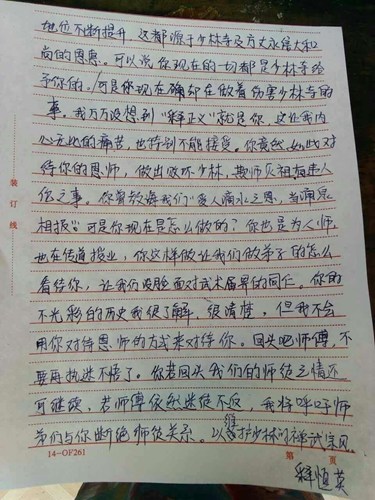 地位不断提升，这都源于少林寺及方丈永信大和
尚的恩惠。可以说你现在的一切都是少林寺给
予你的，可是你现在确却在做着伤害少林寺的
事。我万万没想到"释正义"就是你，这让我内
心无比的痛苦，也特别不能接受。你竟然如此对
待你的恩师，做出败坏少林，欺师灭祖
之事。你曾教诲我们"受人滴水之恩，当涌泉
相报"可是你现在是怎么做的？你也是为人师，
也在传道授业，你这样做让我们做弟子的怎么
看待你，让我们没脸面对武术届界的同仁。你的
不光彩的历史我很了解，很清楚，但我不会
用你对待恩师的方式来对待你。回头吧师傅，不
要再执迷不悟了。你若回头我们的师徒之情还
可继续，若师傅依然迷途不返，我将呼吁师
弟们与你断绝师徒关系。以维护少林的禅武宗风。
释恒英
装订线
14-OF261
第 页